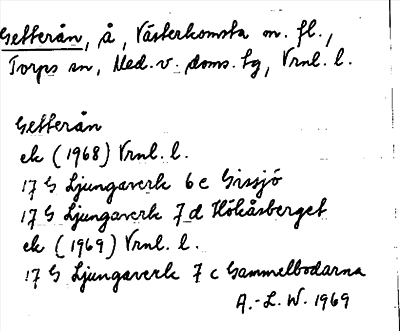 Getterån, å, Västerkomsta m. fl.,
Torps sn, Med. v. doms. tg, Vrnl. l.
Getterån
ek (1968) Vrnl. l.
17 G Ljungaverk 6 c Gissjö
17 G Ljungaverk 7 d Hökåsberget
ek (1969) Vrnl. l.
17 G Ljungaverk 7 c Gammelbodarna
A.-L. W. 1969